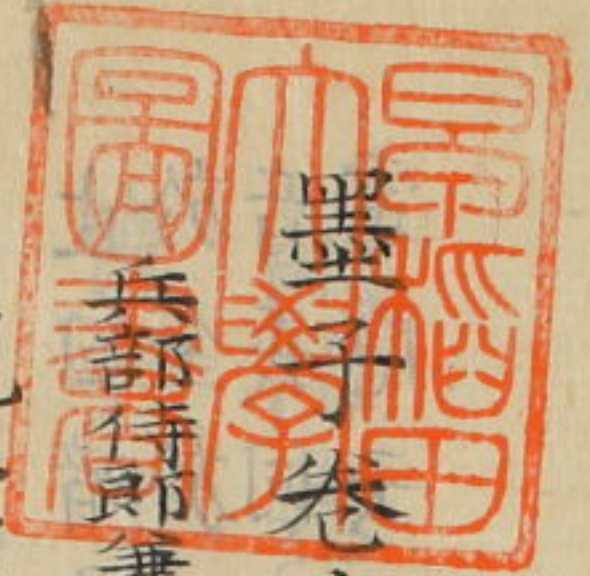 早稻田
大學
圖書
墨子卷
兵部侍郎兼